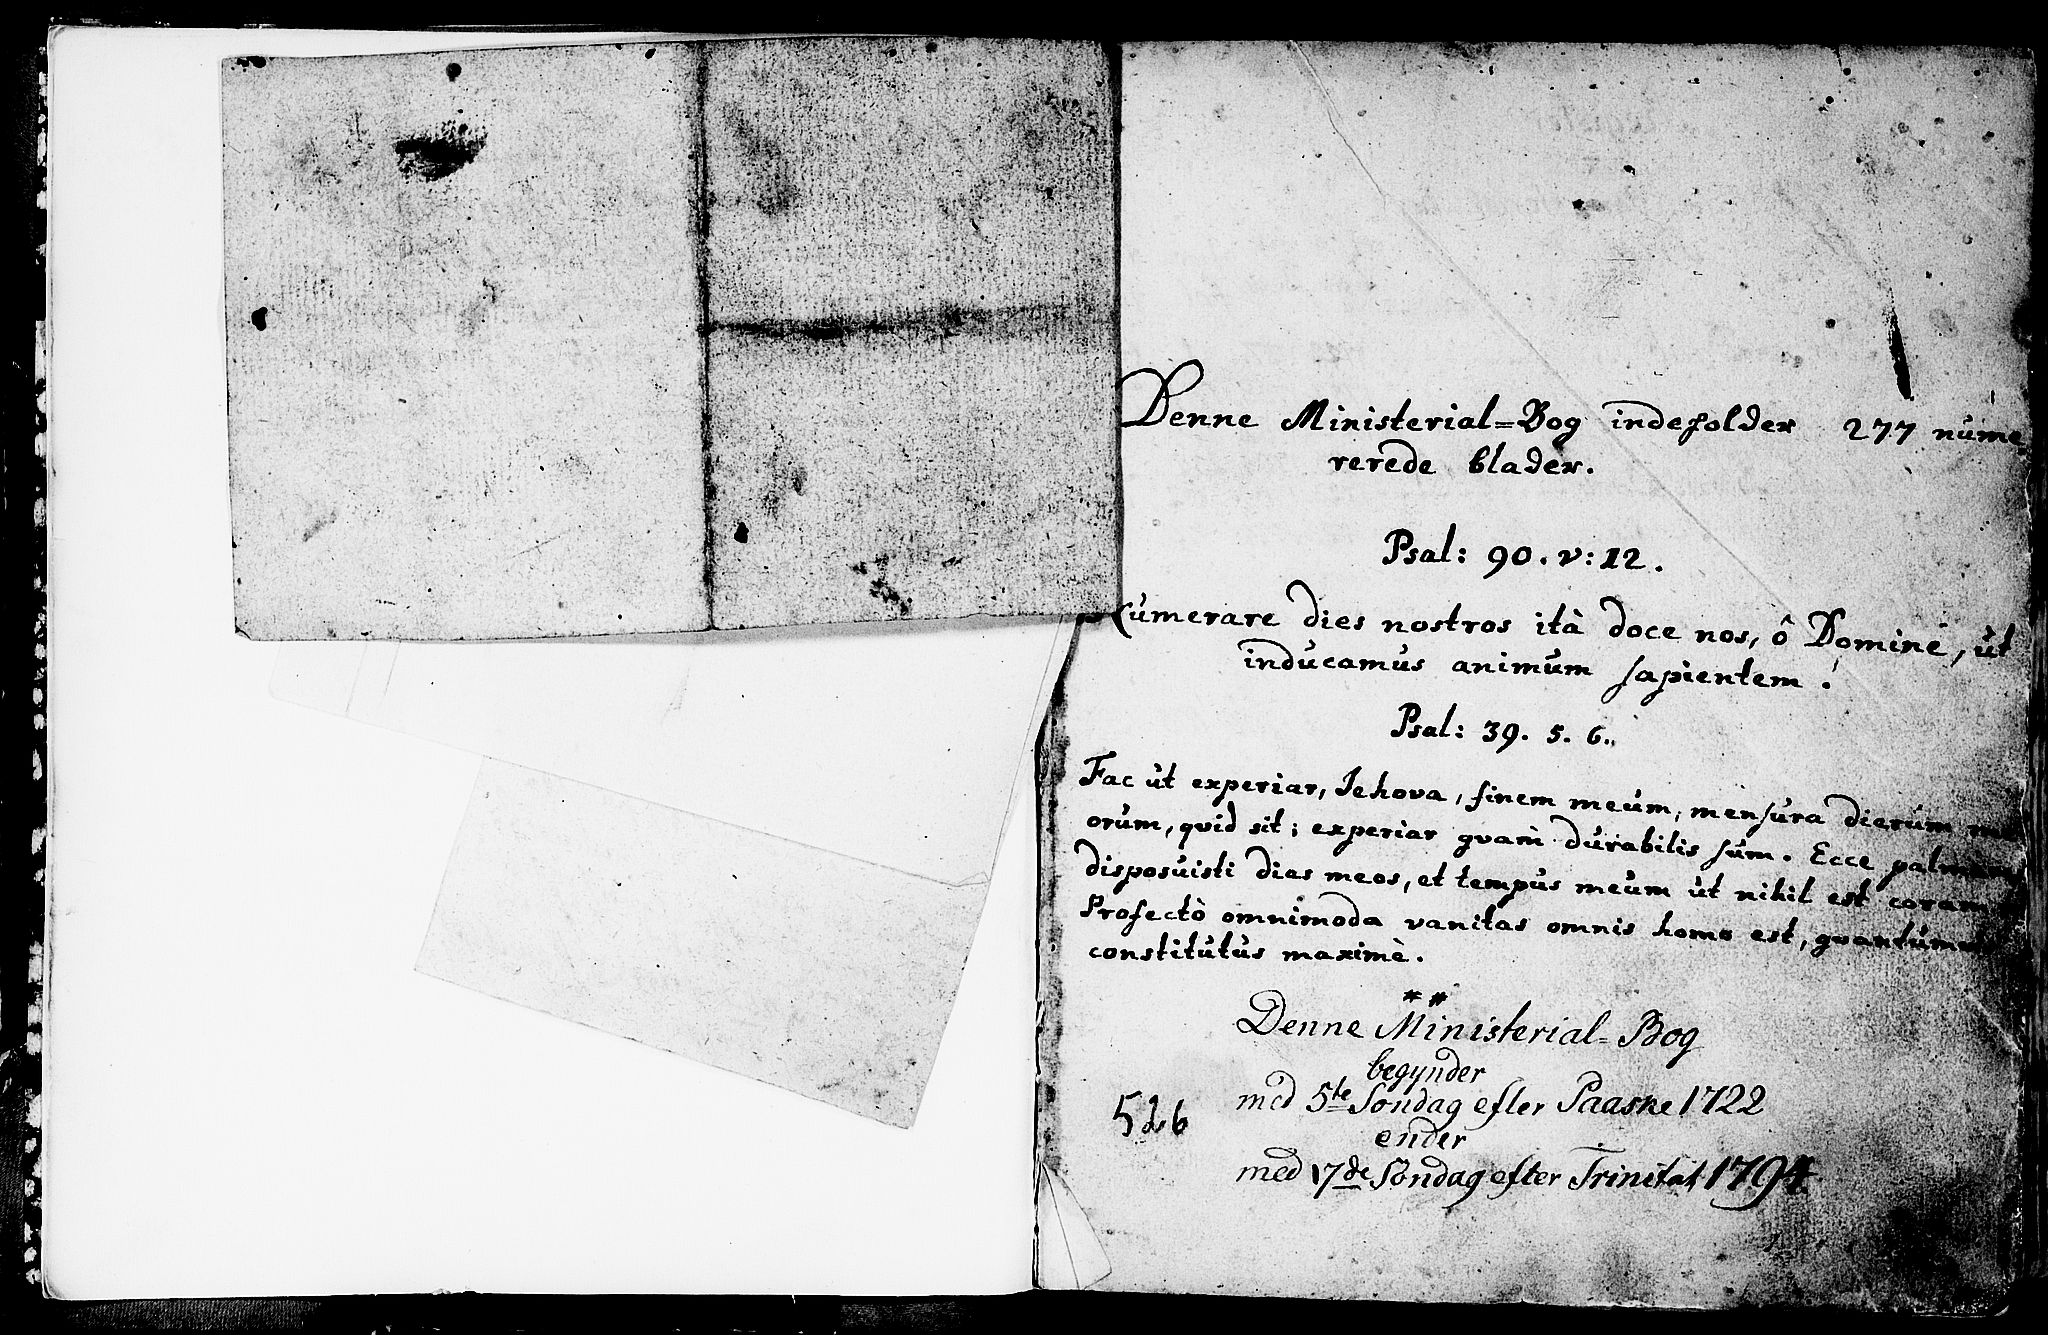 Denne Ministerial=Bog indeholder 277 nume
rerede blader.
Psal: 90. v: 12.
umerare dies nostros ità doce nos, ô Domine, ut
inducamus animum sapientem!
Psal: 39. 5. 6.
Fac ut experiar, Jehova, finem meum, mensura dierum me
orum, qvid sit; experiar qvam durabilis sum. Ecce palmares
disposuisti dies meos, et tempus meum ut nihil est coram
Profectò omnimoda vanitas omnis homo est, qvantumvis
constitutus maximè.
Denne Ministerial=Bog
begynder
med 5te Søndag efter Paaske 1722
526
ender
med 17de Søndag efter Trinitat 1794